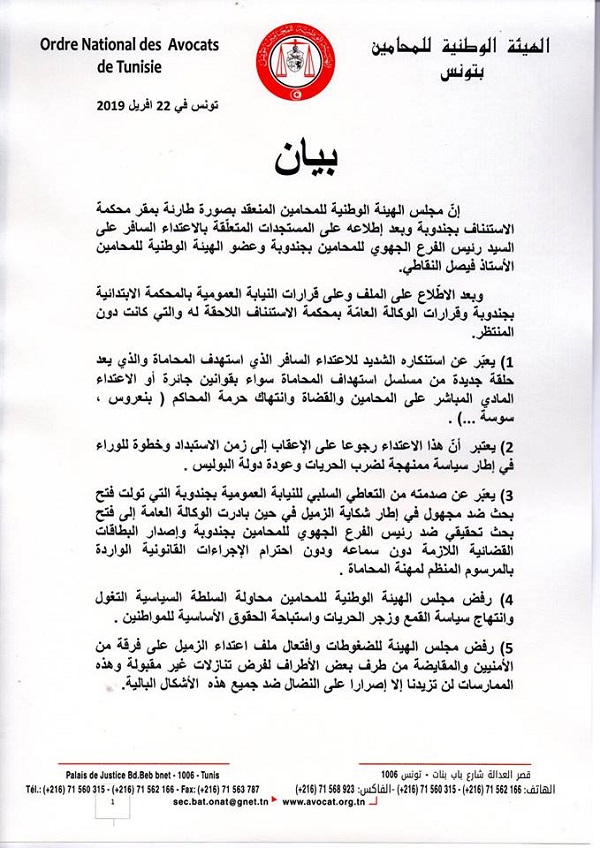 Ordre National des Avocats
de Tunisie
الهيئة الوطنية للمحامين
بتونس
تونس في 22 افريل 2019
بيان
إنّ مجلس الهيئة الوطنية للمحامين المنعقد بصورة طارئة بمقر محكمة
الاستئناف بجندوبة وبعد إطلاعه على المستجدات المتعلّقة بالاعتداء السافر على
السيد رئيس الفرع الجهوي للمحامين بجندوبة وعضو الهيئة الوطنية للمحامين
الأستاذ فيصل النقاطي.
وبعد الاطّلاع على الملف وعلى قرارات النيابة العمومية بالمحكمة الابتدائية
بجندوبة وقرارات الوكالة العامّة بمحكمة الاستئناف اللاحقة له والتي كانت دون
المنتظر.
1) يعبّر عن استنكاره الشديد للاعتداء السافر الذي استهدف المحاماة والذي يعد
حلقة جديدة من مسلسل استهداف المحاماة سواء بقوانين جائرة أو الاعتداء
المادي المباشر على المحامين والقضاة وانتهاك حرمة المحاكم ( بنعروس ،
سوسة ...) .
2) يعتبر أنّ هذا الاعتداء رجوعا على الإعقاب إلى زمن الاستبداد وخطوة للوراء
في إطار سياسة ممنهجة لضرب الحريات وعودة دولة البوليس .
3) يعبّر عن صدمته من التعاطي السلبي للنيابة العمومية بجندوبة التي تولت فتح
بحث ضد مجهول في إطار شكاية الزميل في حين بادرت الوكالة العامة إلى فتح
بحث تحقيقي ضد رئيس الفرع الجهوي للمحامين بجندوبة وإصدار البطاقات
القضائية اللازمة دون سماعه ودون احترام الإجراءات القانونية الواردة
بالمرسوم المنظم لمهنة المحاماة .
4) رفض مجلس الهيئة الوطنية للمحامين محاولة السلطة السياسية التغول
وانتهاج سياسة القمع وزجر الحريات واستباحة الحقوق الأساسية للمواطنين .
5) رفض مجلس الهيئة للضغوطات وافتعال ملف اعتداء الزميل على فرقة من
الأمنيين والمقايضة من طرف بعض الأطراف لفرض تنازلات غير مقبولة وهذه
الممارسات لن تزيدنا إلا إصرارا على النضال ضد جميع هذه الأشكال البالية.
Palais de Justice Bd.Beb bnet - 1006 - Tunis
قصر العدالة شارع باب بنات - تونس 1006
Tél.: (+216) 71 560 315 - (+216) 71 562 166 - Fax: (+216) 71 563 787
الهاتف: 166 562 71 (216+) - 315 560 71 (216+) -الفاكس: 923 568 71 (216+)
sec.bat.onat@gnet.tn www.avocat.org.tn
1